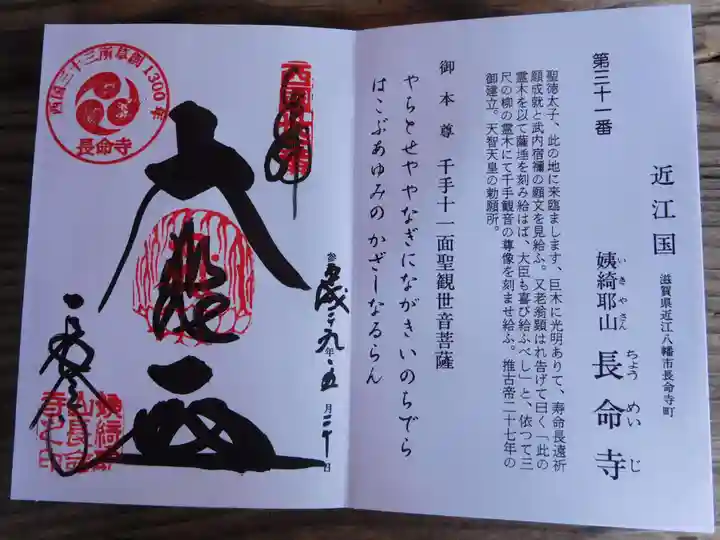 近江国
滋賀県近江八幡市長命寺町
第三十一番
姨綺耶山 長命寺
いきやさん ちょうめいじ
聖徳太子、此の地に来臨まします、巨木に光明ありて、寿命長遠祈
願成就と武内宿禰の願文を見給ふ。又老翁顕はれ告げて曰く「此の
霊木を以て薩埵を刻み給はば、大臣も喜び給ふべし」と、依つて三
尺の柳の霊木にて千手観音の尊像を刻ませ給ふ。推古帝二十七年の
御建立。天智天皇の勅願所。
御本尊 千手十一面聖観世音菩薩
やちとせややなぎにながきいのちでら
はこぶあゆみの かざしなるらん
西国三十三所草創1300年
長命寺
平成二十九年五月二十日
姨綺耶山長命寺之印